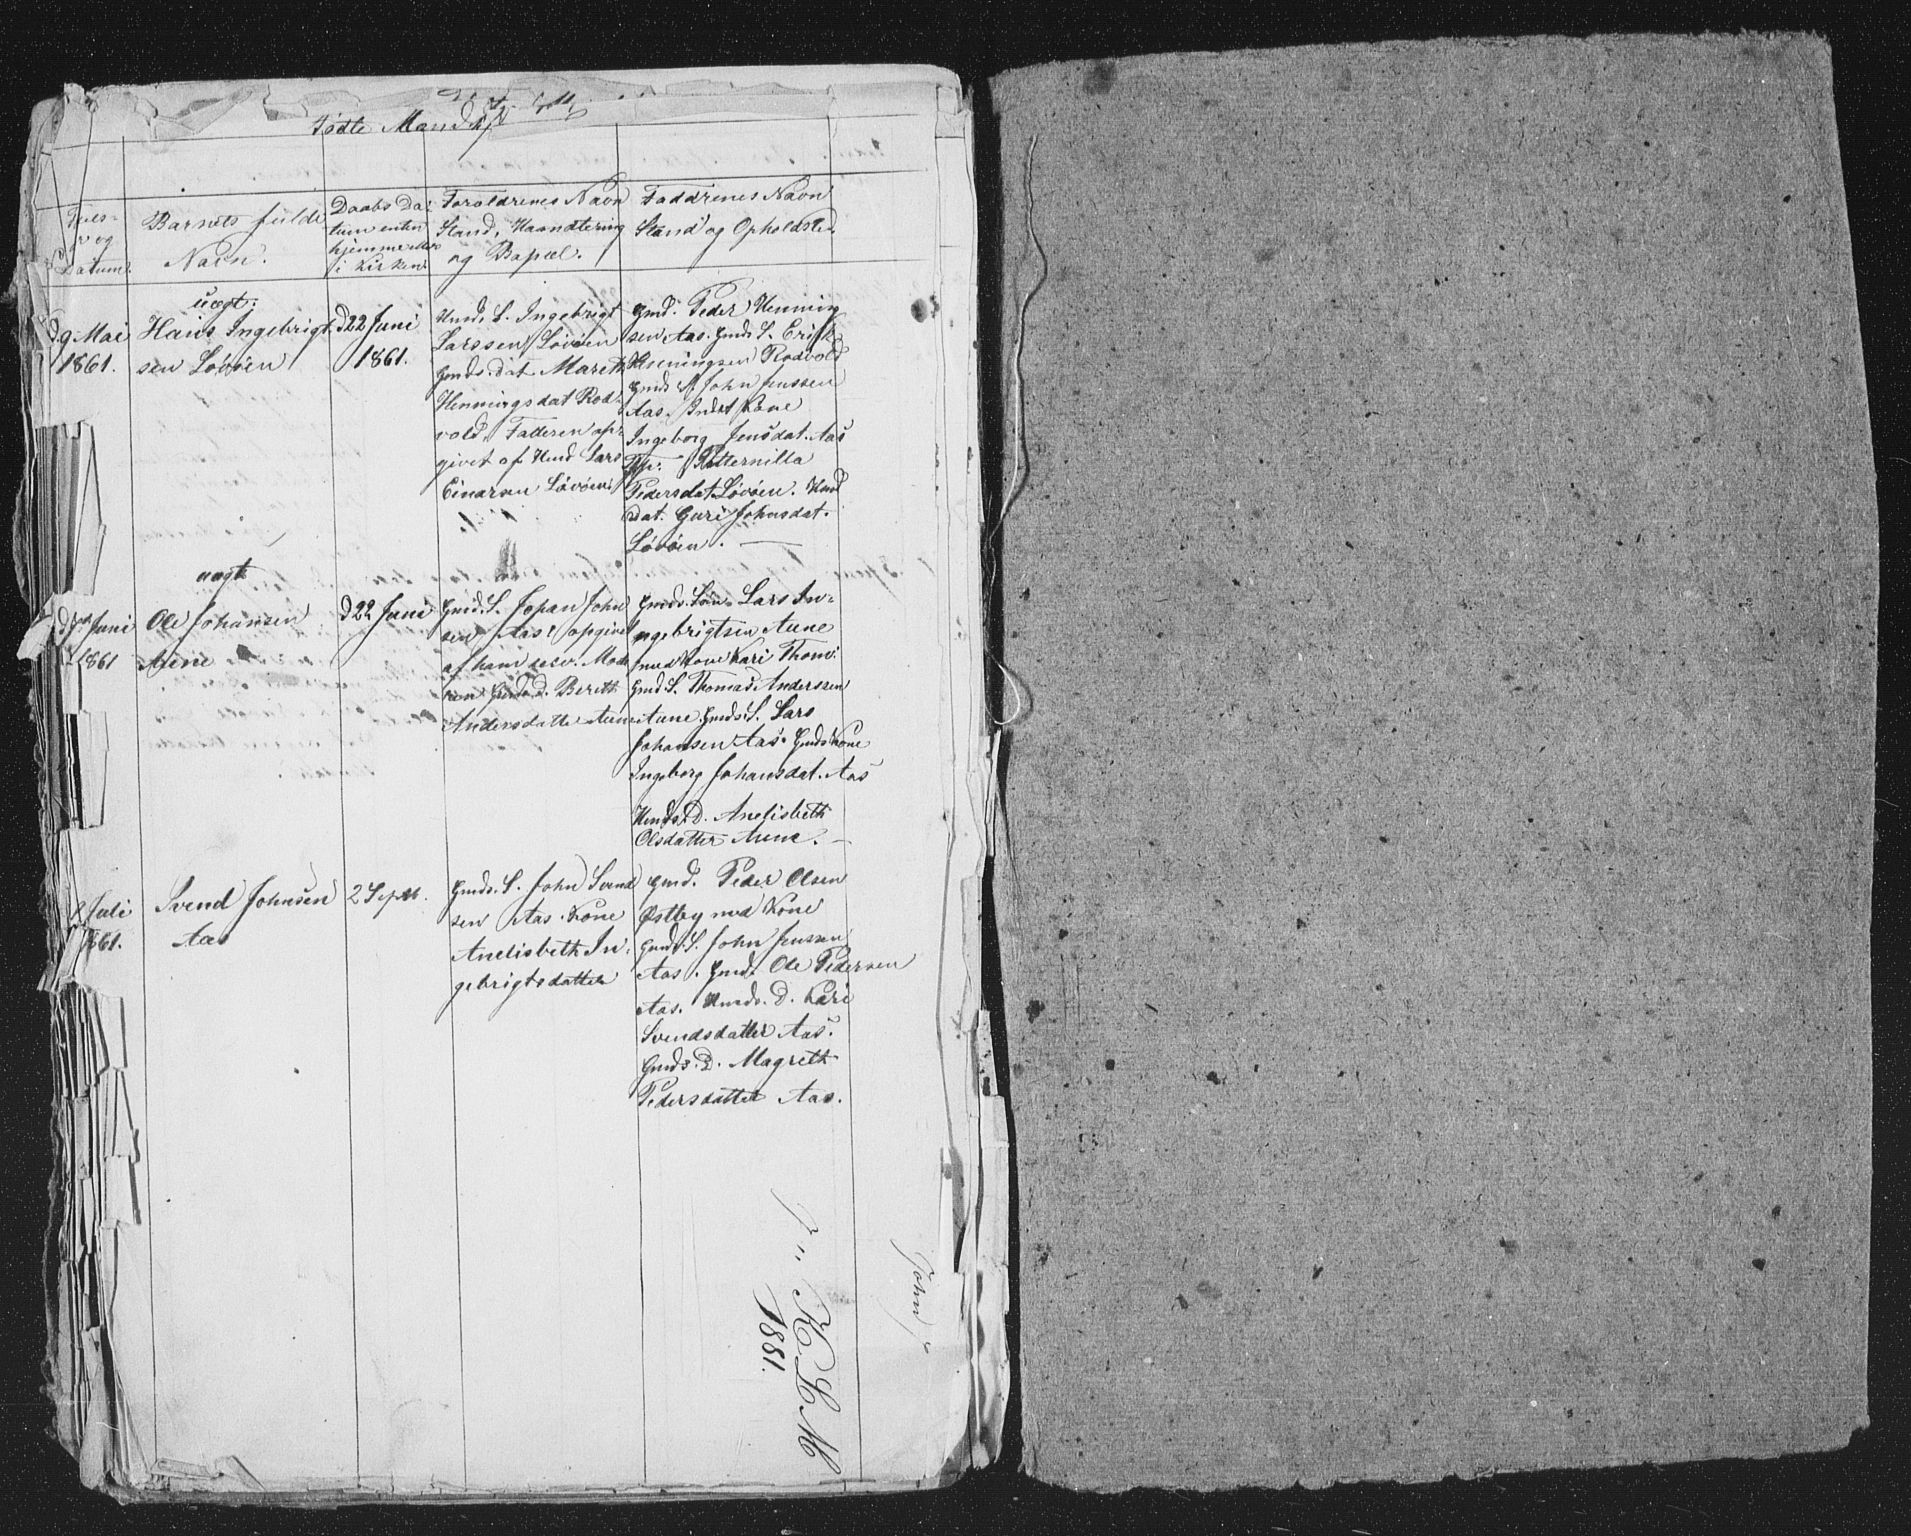 Fødte Mandkj
Barnets fulde
Navn.
Daabs Da-
tum enten
hjemme eller
i Kirken.
Foroldrenes Navn
Stand, Haandtering
og Bopæl.
Faddrenes Navn
Stand og Opholdsted.
Datum.
d 9 Mai
1861.
uægt.
Hans Ingebrigt
sen Løvöen
d 22 Juni
1861.
S. Ingebrigt
Larssen Løvöen
Gmds. dat. Marith
Henningsdat Rod-
vold. Fatteren op-
givet af Hmd Lars
Einarsen Løvöen
Gmd. Peder Henning
sen Aas. Gmds S. Erik
Henningsen Rodvold
Gmds John Jenssen
Aas. Kone
Ingeborg Jensdat. Aas
Petternilla
Pedersdat Løvöen.
dat. Guri Johnsdat.
Løvöen.
uægt
Juni
1861
Ole Johansen
Aune
d 22 Juni
Gmd. S. Johan John
sen Aas opgivet
af ham selv. Mode
ren Gmds. d. Berith
Andersdatter Aune
Gmds. Søn Lars In-
ngebrigtsen Aune
med Kone Kari Thom.
Gmd S. Thomas Anderssen
Aune. Gmds. S. Lars
Johansen Aas. Gmds Kone
Ingeborg Johansdat. Aas
Hmds. D. Anelisbeth
Olsdatter Aune.
Juli
1861.
Svend Johnsen
Aas
2 Septb.
Gmds. S. John Svend
sen Aas. Kone
Anelisbeth In-
gebrigtsdatter
Gmd. Peder Olsen
Østby med Kone
Gmds. S. John Jenssen
Aas. Gmd. Ole Pedersen
Aas. Hmds. D. Kari
Svendsdatter Aas.
Gmds. D. Magreth
Pedersdatter Aas.
1881.